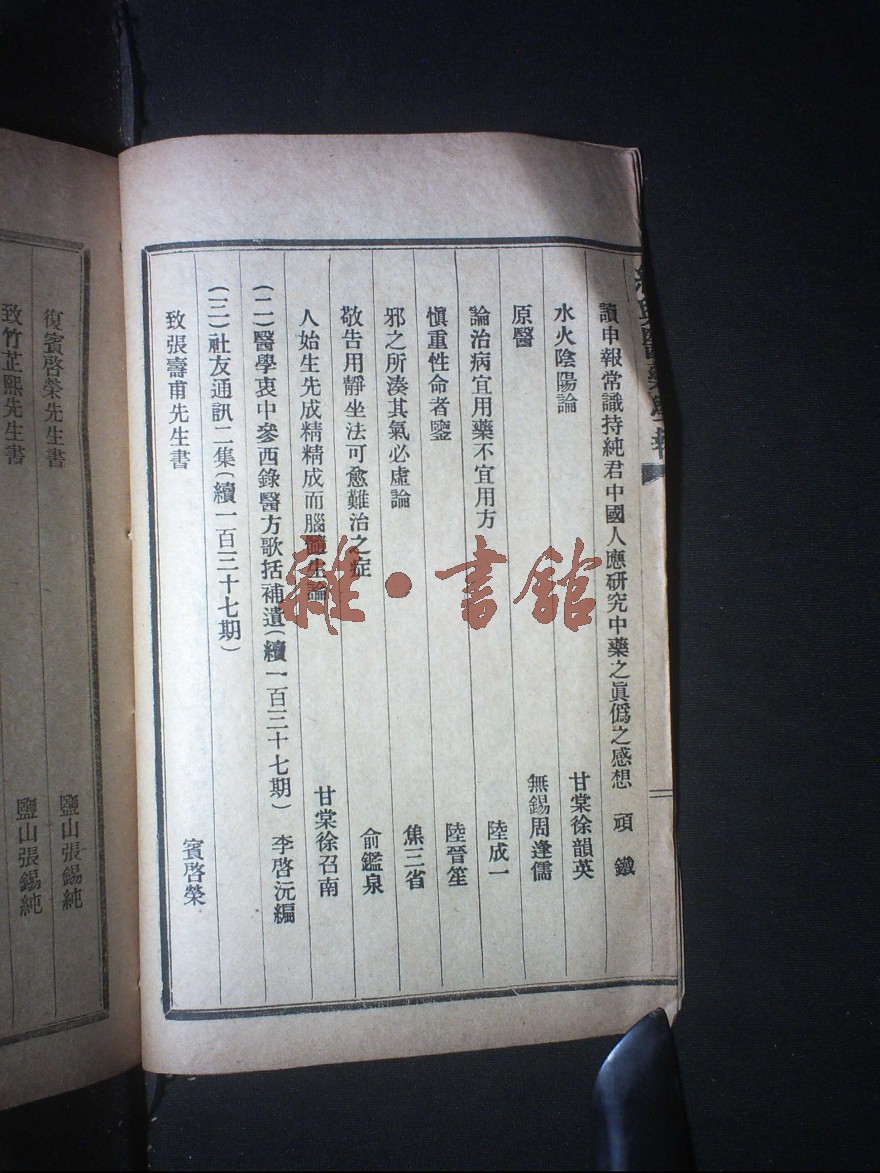 讀申報常識持純君中國人應硏究中藥之眞僞之感想 頑鐵
水火陰陽論 甘棠徐韻英
原醫 無錫周逢儒
論治病宜用藥不宜用方 陸成一
愼重性命者鑒 陸晉笙
邪之所湊其氣必虛論 焦三省
敬告用靜坐法可愈難治之症 俞鑑泉
人始生先成精精成而腦髓生論 甘棠徐召南
(二)醫學衷中參西錄醫方歌括補遺(續一百三十七期) 李啓沅編
(三)社友通訊二集(續一百三十七期)
致張壽甫先生書 賓啓榮
復賓啓榮先生書 鹽山張錫純
致竹芷熙先生書 鹽山張錫純
雜·書館